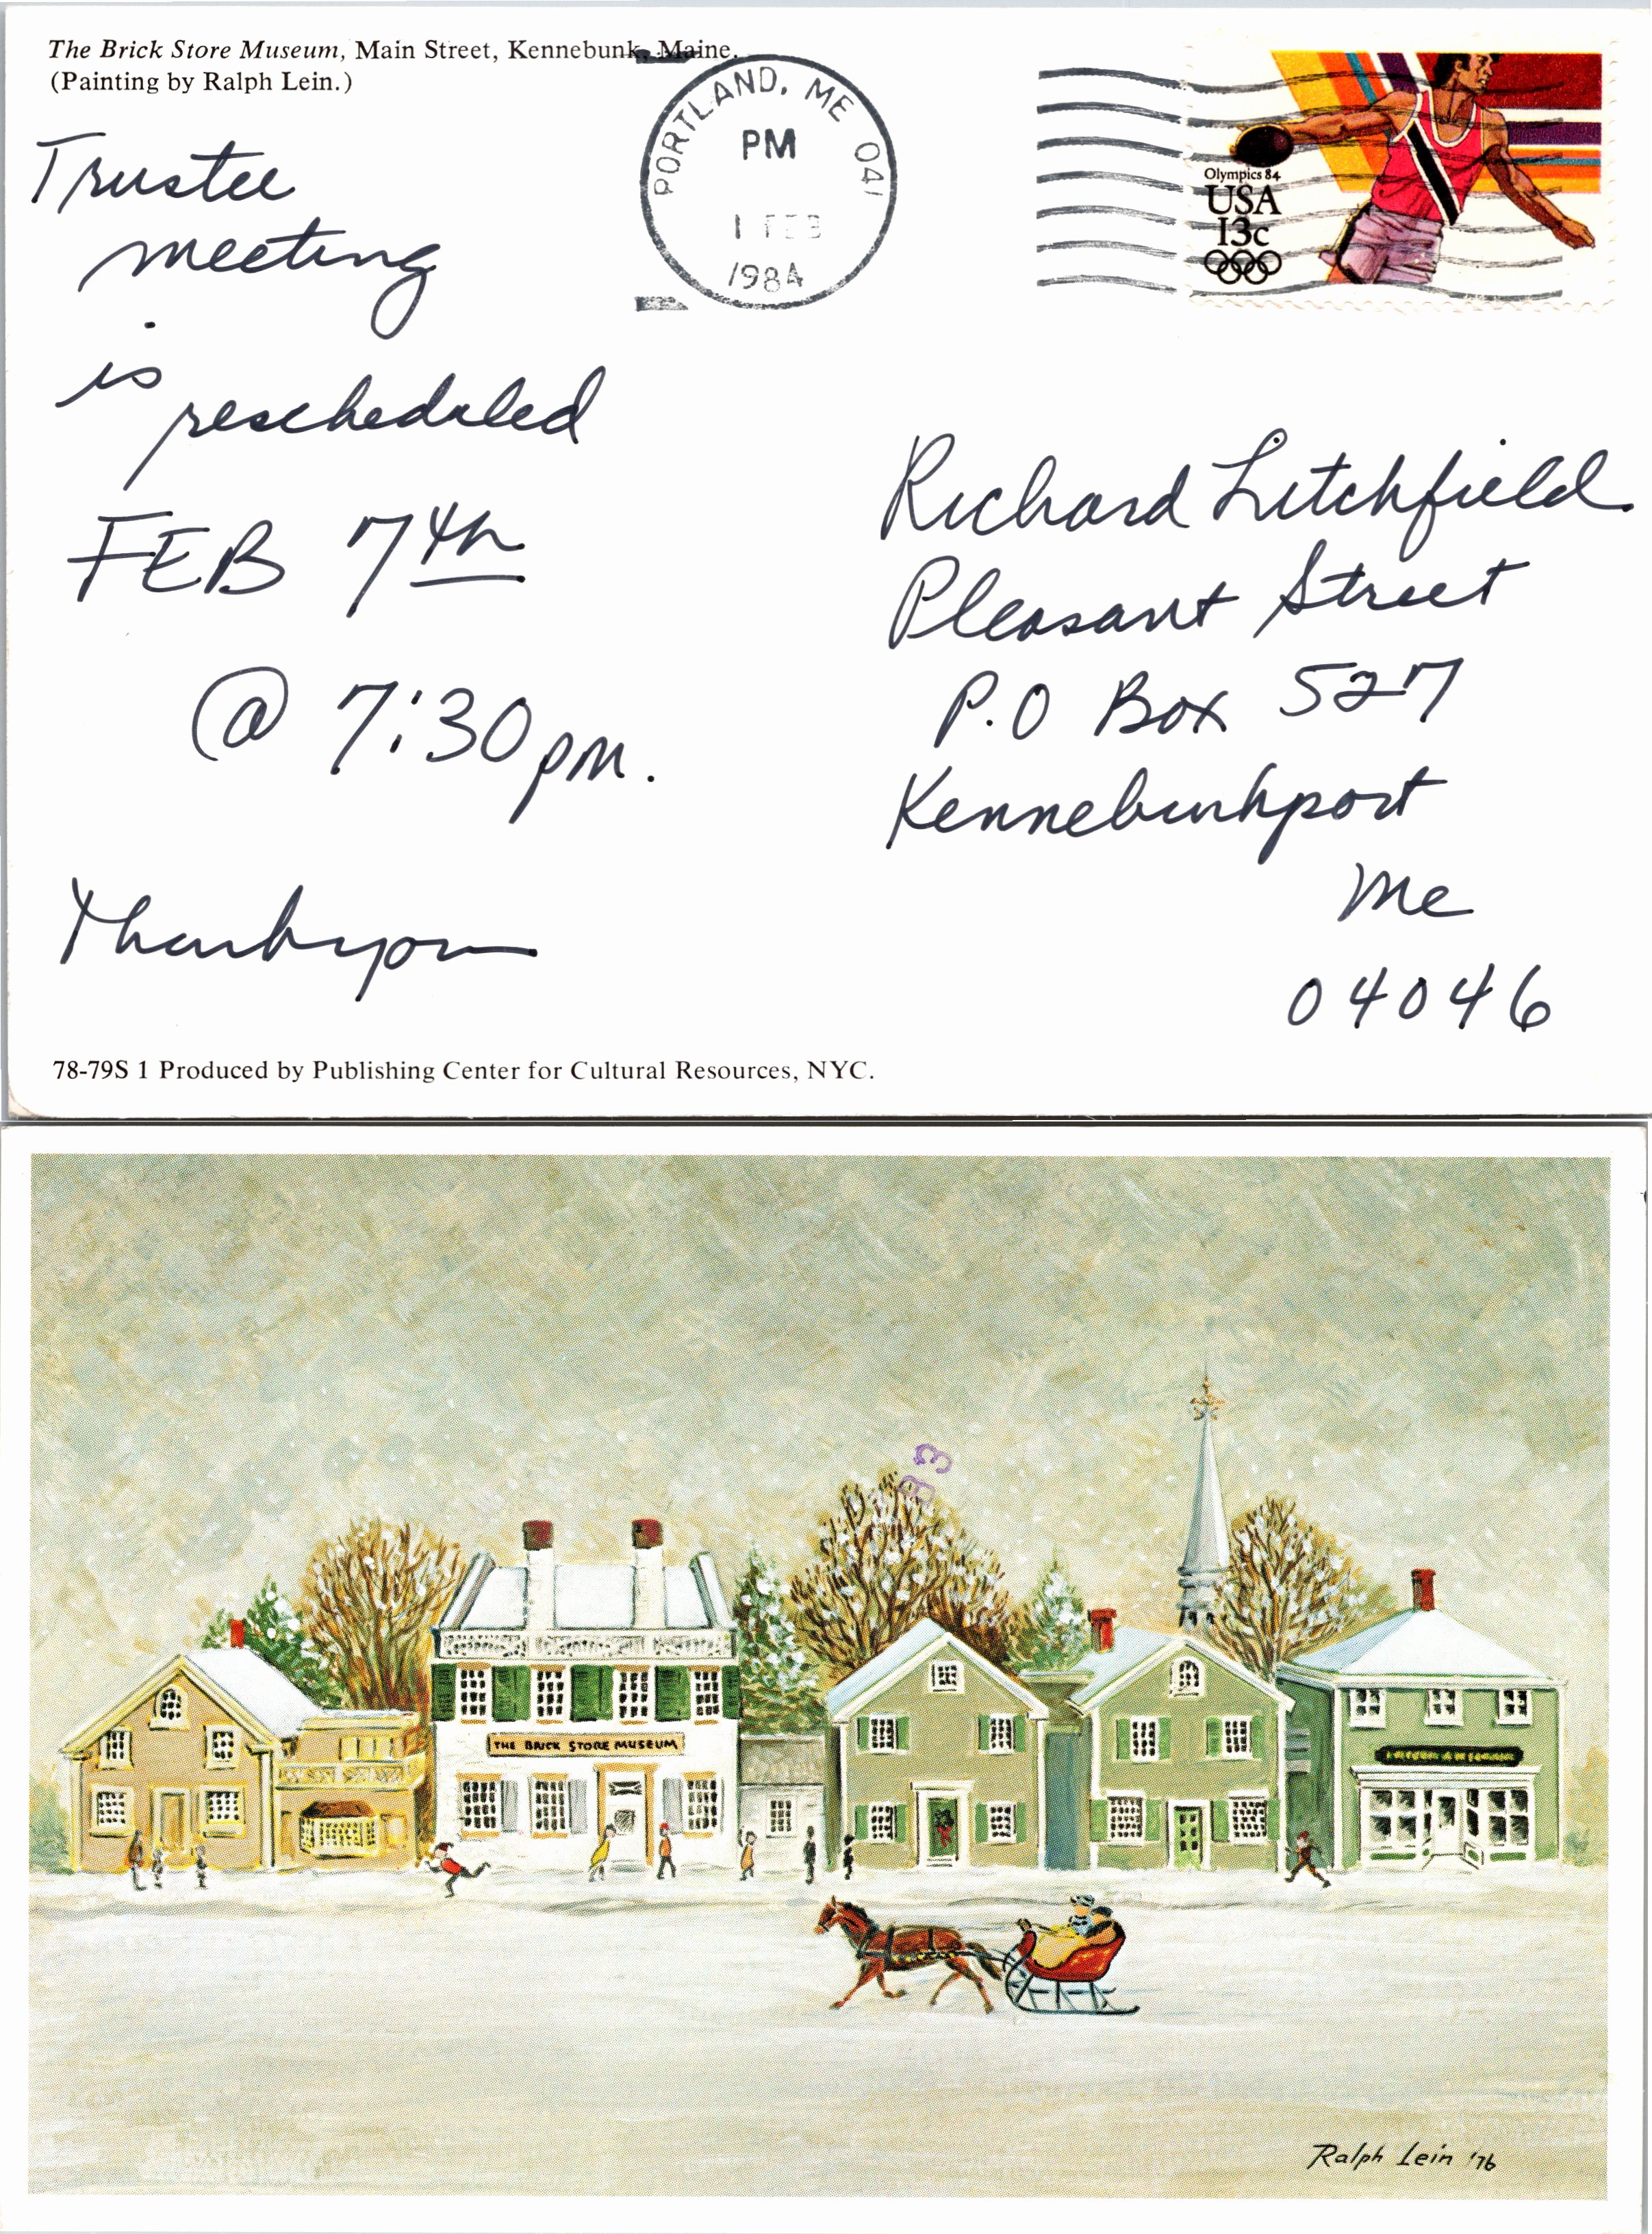 The Brick Store Museum, Main Street, Kennebunk, Maine.
(Painting by Ralph Lein.)
PORTLAND, ME 041
PM
1 FEB
1984
Olympics 84
USA
13c
Trustee
meeting
is
rescheduled
FEB 7th
@ 7:30 pm.
Thank you
Richard Litchfield
Pleasant Street
P.O Box 527
Kennebunkport
Me
04046
78-79S 1 Produced by Publishing Center for Cultural Resources, NYC.
THE BRICK STORE MUSEUM
Ralph Lein '76